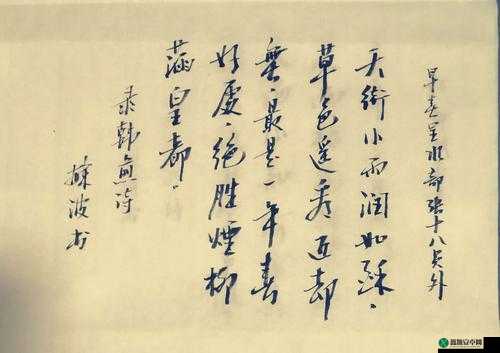 早春呈水部张十八员外
天街小雨润如酥、
草色遥看近却
無、最是一年春
好處、绝勝煙柳
满皇都、
录韩愈诗
波书